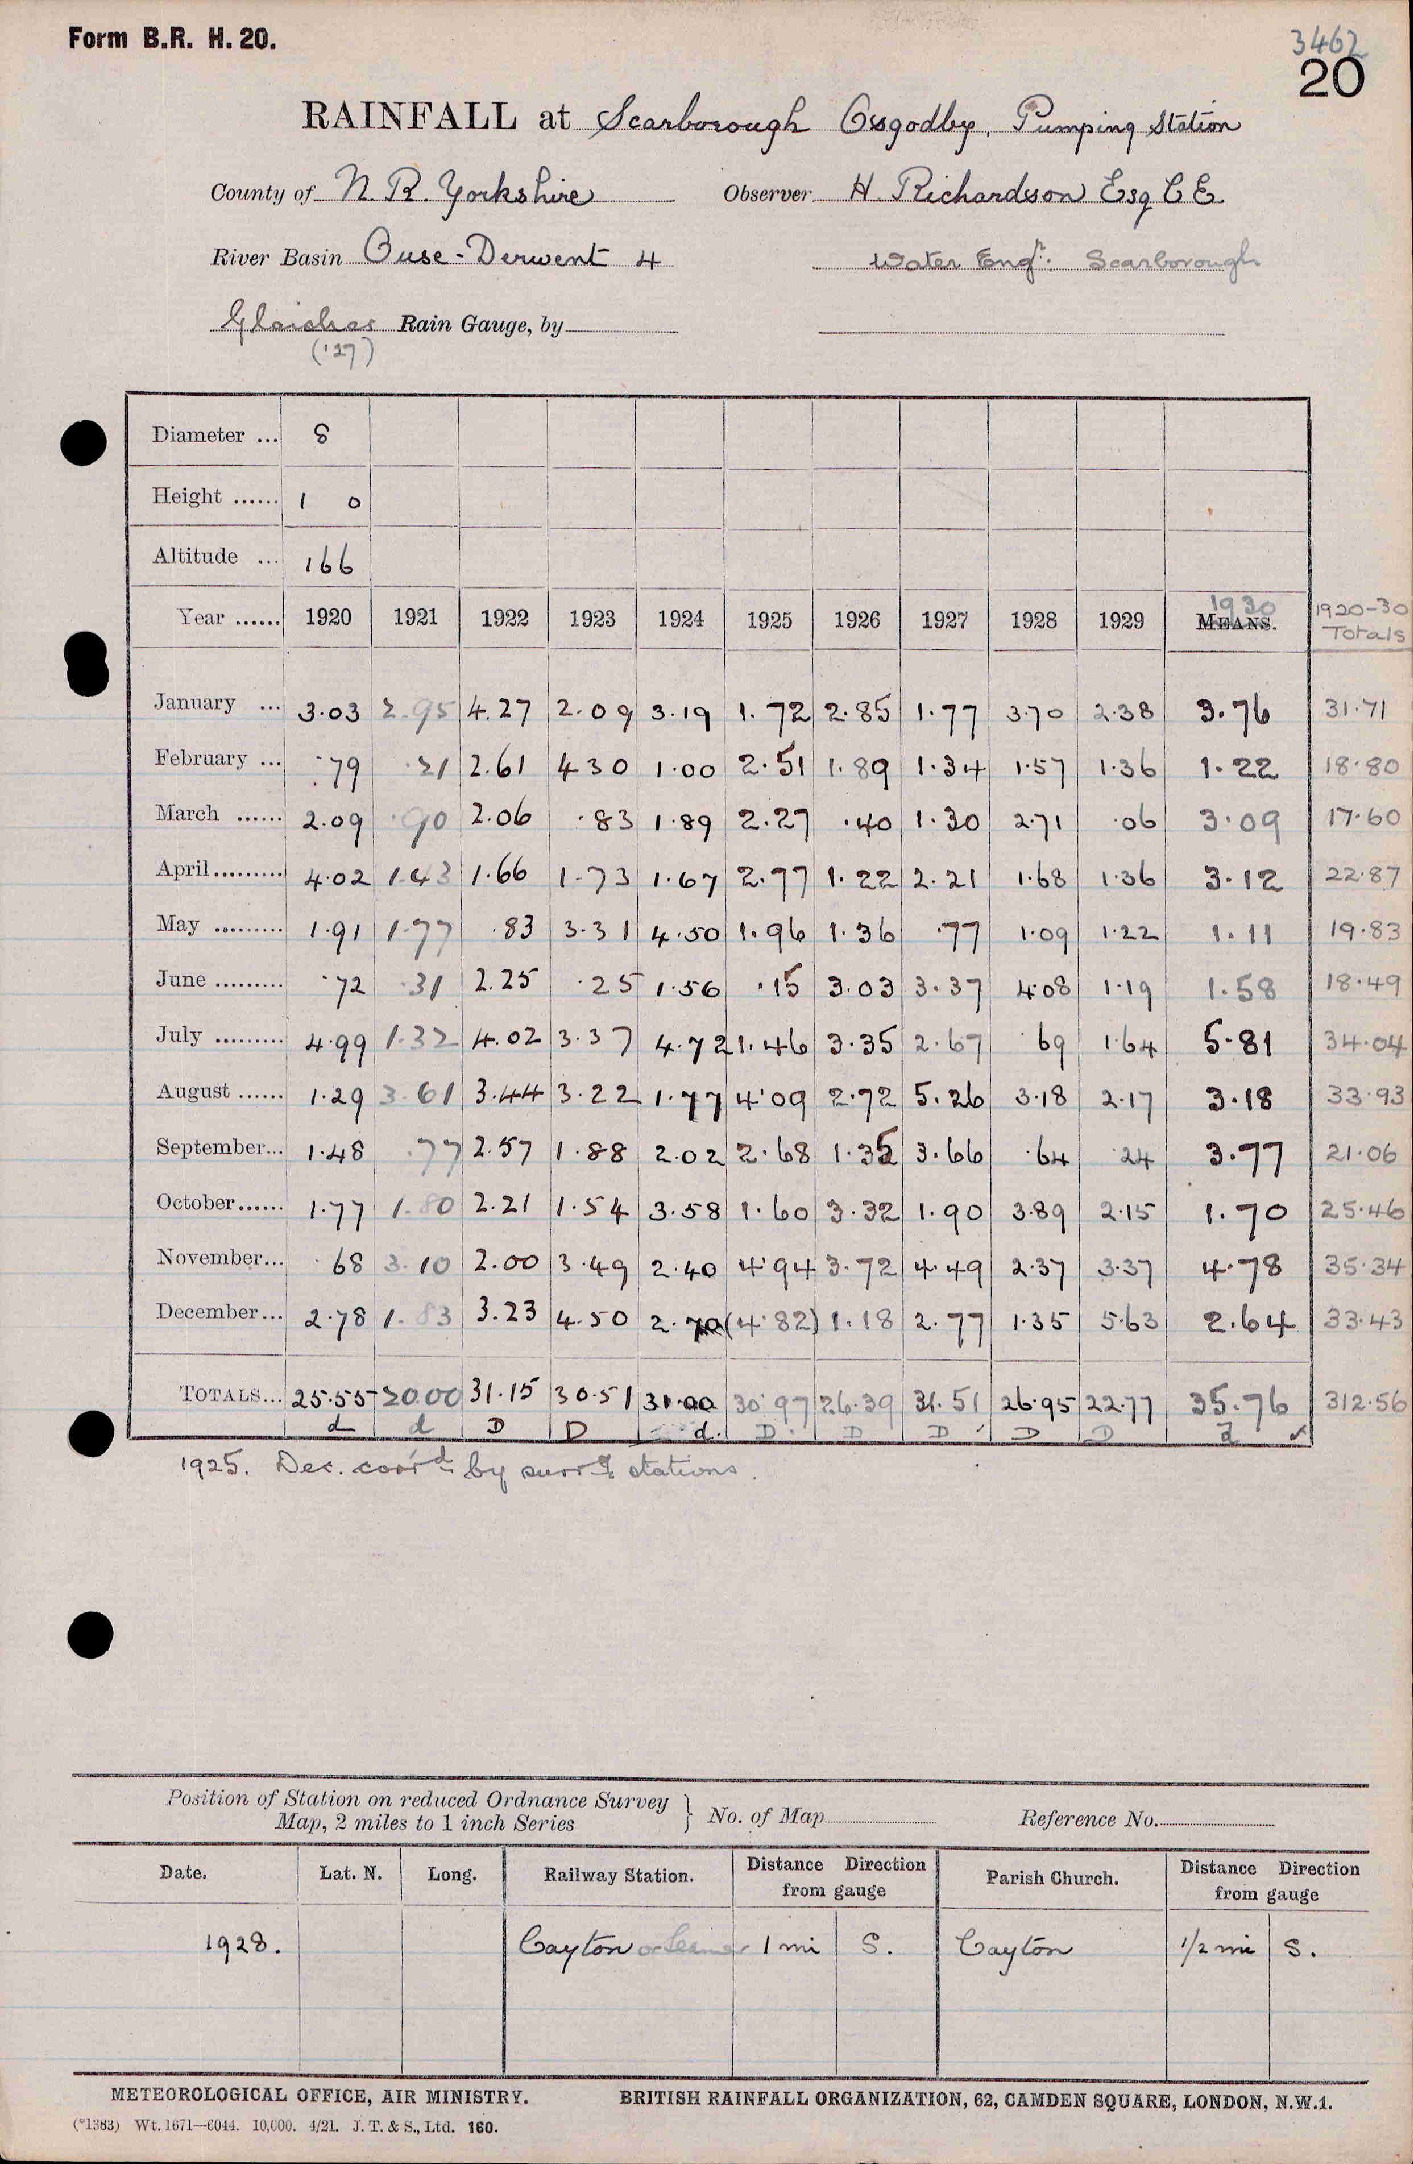 Form B.R. H. 20.
3462
20
RAINFALL at Scarborough Osgodby, Pumping Station
County of N. R. Yorkshire Observer H. Richardson Esq C E
River Basin Ouse-Derwent 4 Water Engr. Scarborough
Glaisher Rain Gauge, by
('27)
Diameter ... 8
Height ...... 1 0
Altitude ... 166
Year ...... 1920 1921 1922 1923 1924 1925 1926 1927 1928 1929 1930 MEANS. 1920-30 Totals
January ... 3.03 2.95 4.27 2.09 3.19 1.72 2.85 1.77 3.70 2.38 3.76 31.71
February ... .79 .21 2.61 4.30 1.00 2.51 1.89 1.34 1.57 1.36 1.22 18.80
March ...... 2.09 .90 2.06 .83 1.89 2.27 .40 1.30 2.71 .06 3.09 17.60
April......... 4.02 1.43 1.66 1.73 1.67 2.77 1.22 2.21 1.68 1.36 3.12 22.87
May ......... 1.91 1.77 .83 3.31 4.50 1.96 1.36 .77 1.09 1.22 1.11 19.83
June ......... .72 .31 2.25 .25 1.56 .15 3.03 3.37 4.08 1.19 1.58 18.49
July ......... 4.99 1.32 4.02 3.37 4.72 1.46 3.35 2.67 .69 1.64 5.81 34.04
August ...... 1.29 3.61 3.44 3.22 1.77 4.09 2.72 5.26 3.18 2.17 3.18 33.93
September... 1.48 .77 2.57 1.88 2.02 2.68 1.35 3.66 .64 .24 3.77 21.06
October...... 1.77 1.80 2.21 1.54 3.58 1.60 3.32 1.90 3.89 2.15 1.70 25.46
November... .68 3.10 2.00 3.49 2.40 4.94 3.72 4.49 2.37 3.37 4.78 35.34
December... 2.78 1.83 3.23 4.50 2.70 (4.82) 1.18 2.77 1.35 5.63 2.64 33.43
TOTALS... 25.55 20.00 31.15 30.51 31.00 30.97 26.39 31.51 26.95 22.77 35.76 312.56
d d D D d. D. D D D D d ✓
1925. Dec. corrd by surrg stations.
Position of Station on reduced Ordnance Survey Map, 2 miles to 1 inch Series } No. of Map Reference No.
Date. Lat. N. Long. Railway Station. Distance Direction from gauge Parish Church. Distance Direction from gauge
1928. Cayton or Seamer 1 mi S. Cayton 1/2 mi S.
METEOROLOGICAL OFFICE, AIR MINISTRY. BRITISH RAINFALL ORGANIZATION, 62, CAMDEN SQUARE, LONDON, N.W.1.
(*1383) Wt. 1671—6044. 10,000. 4/21. J. T. & S., Ltd. 160.